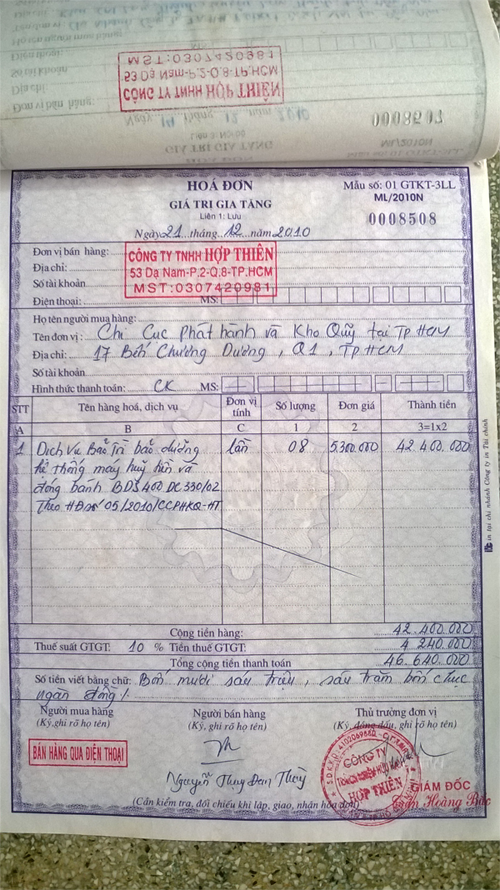 MST:0307420981
53 Dạ Nam-P.2-Q.8-TP.HCM
CÔNG TY TNHH HỢP THIÊN
Điện thoại:
Số tài khoản
Địa chỉ:
Đơn vị bán hàng:
Ngày 14 tháng 12 năm 2010
0008507
GIÁ TRỊ GIA TĂNG
ML/2010N
HOÁ ĐƠN
Mẫu số: 01 GTKT-3LL
GIÁ TRỊ GIA TĂNG
ML/2010N
Liên 1: Lưu
0008508
Ngày 21 tháng 12 năm 2010
Đơn vị bán hàng:
CÔNG TY TNHH HỢP THIÊN
Địa chỉ:
53 Dạ Nam-P.2-Q.8-TP.HCM
Số tài khoản
MST:0307420981
Điện thoại: MS:
Họ tên người mua hàng:
Tên đơn vị: Chi Cục phát hành và Kho Quỹ tại Tp HCM
Địa chỉ: 17 Bến Chương Dương, Q1, Tp HCM
Số tài khoản
Hình thức thanh toán: CK MS:
STT Tên hàng hoá, dịch vụ Đơn vị tính Số lượng Đơn giá Thành tiền
A B C 1 2 3=1x2
1 Dịch vụ Bảo trì bảo dưỡng lần 08 5.300.000 42.400.000
hệ thống máy huỷ tiền và
đóng bánh BDS 400 DC 330/02
Theo HĐ số 05/2010/CCPHKQ-HT
Cộng tiền hàng: 42.400.000
Thuế suất GTGT: 10 % Tiền thuế GTGT: 4.240.000
Tổng cộng tiền thanh toán 46.640.000
Số tiền viết bằng chữ: Bốn mươi sáu triệu, sáu trăm bốn chục
ngàn đồng /.
Người mua hàng Người bán hàng Thủ trưởng đơn vị
(Ký, ghi rõ họ tên) (Ký, ghi rõ họ tên) (Ký, đóng dấu, ghi rõ họ tên)
BÁN HÀNG QUA ĐIỆN THOẠI
CÔNG TY
HỢP THIÊN
Nguyễn Thụy Đan Thùy
GIÁM ĐỐC
Trần Hoàng Bảo
(Cần kiểm tra, đối chiếu khi lập, giao, nhận hóa đơn)